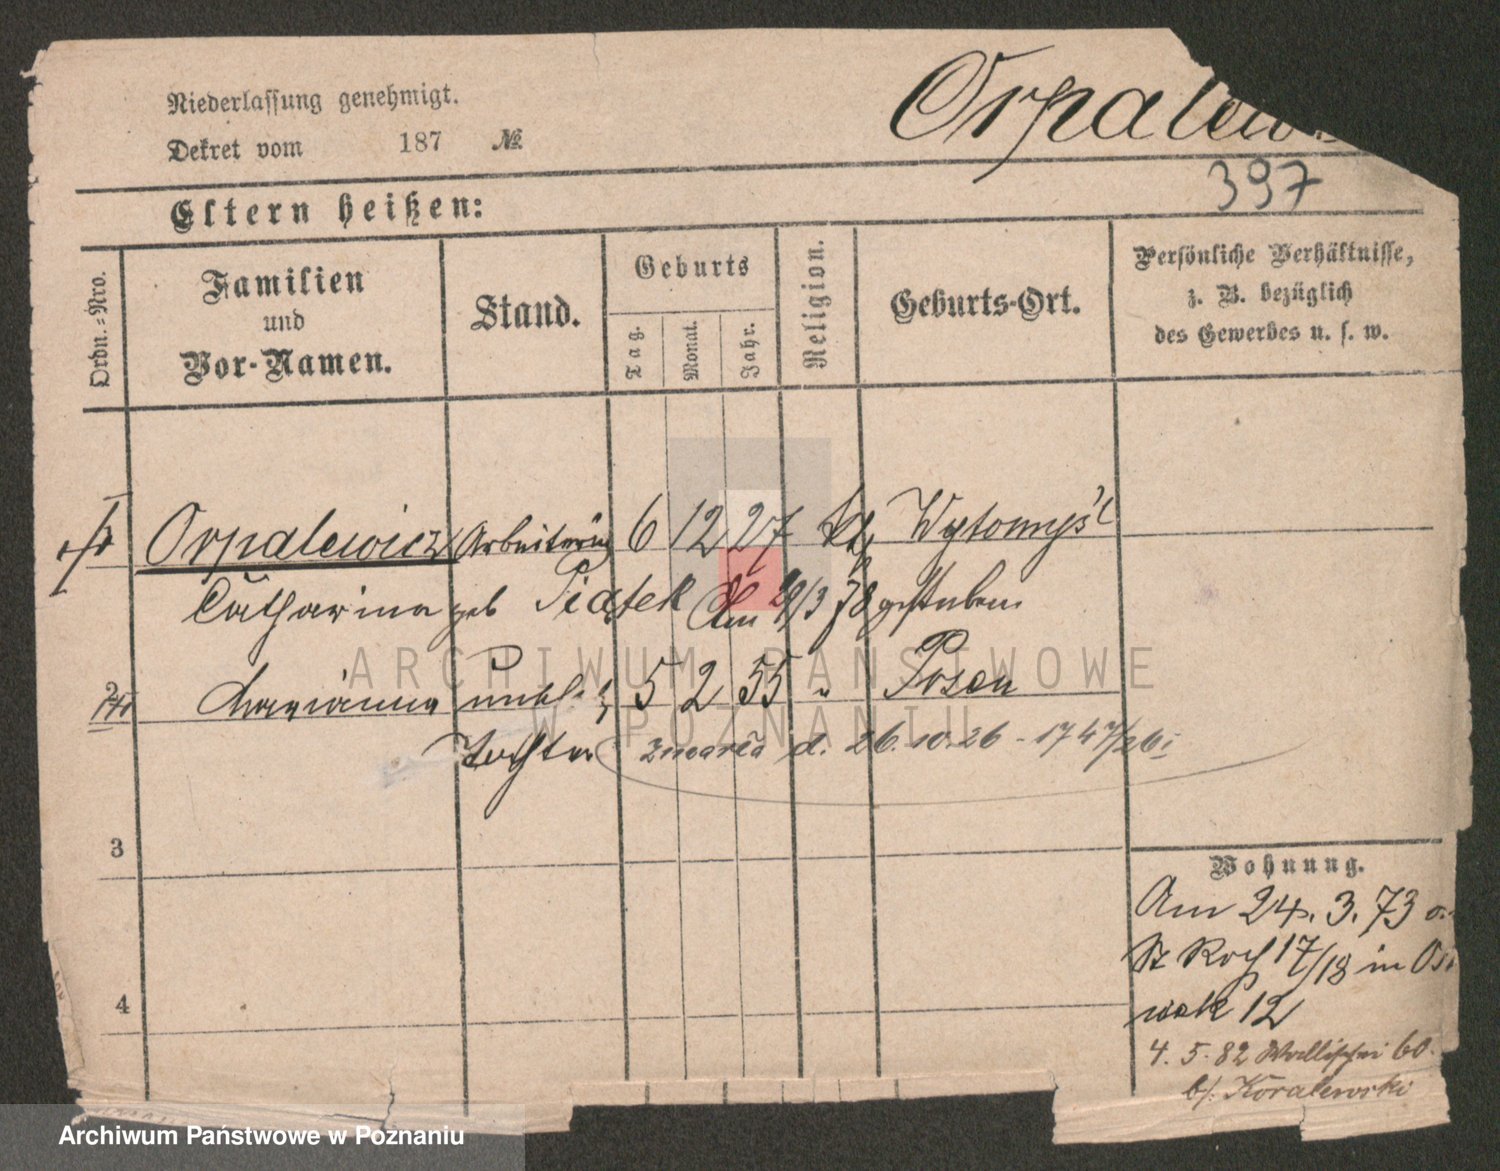 Orpalew
Niederlassung genehmigt.
Dekret vom 187 №
397
Eltern heißen:
Ordn.=Nro.
Familien
und
Vor-Namen.
Stand.
Geburts
Tag.
Monat.
Jahr.
Religion.
Geburts-Ort.
Persönliche Verhältnisse,
z. B. bezüglich
des Gewerbes u. s. w.
Orpalewicz Arbeiterin 6 12 27 kth Wytomyśl
Catharina geb Piątek Am 29/3 78 gestorben
2 Marianna unehl. 5 2 55 " Posen
Tochter zmarła d. 26.10.26 - 1747/26
3
4
Wohnung.
Am 24. 3. 73
St Roch 17/18 in Os
wek 12
4. 5. 82 Wallischei 60.
b/. Koralewski
ARCHIWUM PAŃSTWOWE
W POZNANIU
Archiwum Państwowe w Poznaniu